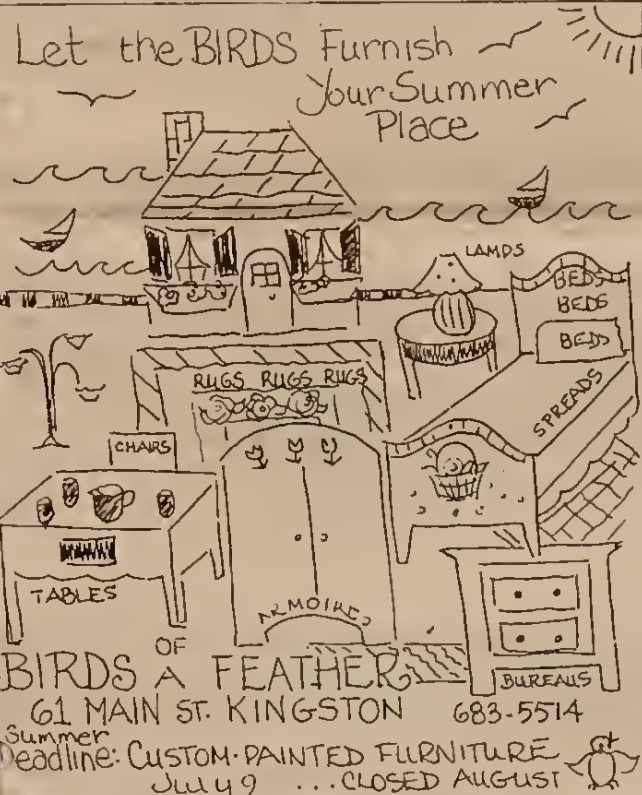 Let the BIRDS Furnish
Your Summer
Place
LAMPS
BEDS
BEDS
BEDS
SPREADS
RUGS RUGS RUGS
CHAIRS
TABLES
ARMOIRES
BUREAUS
BIRDS OF A FEATHER
61 MAIN ST. KINGSTON 683-5514
Summer
Deadline: CUSTOM-PAINTED FURNITURE
July 9 ... CLOSED AUGUST